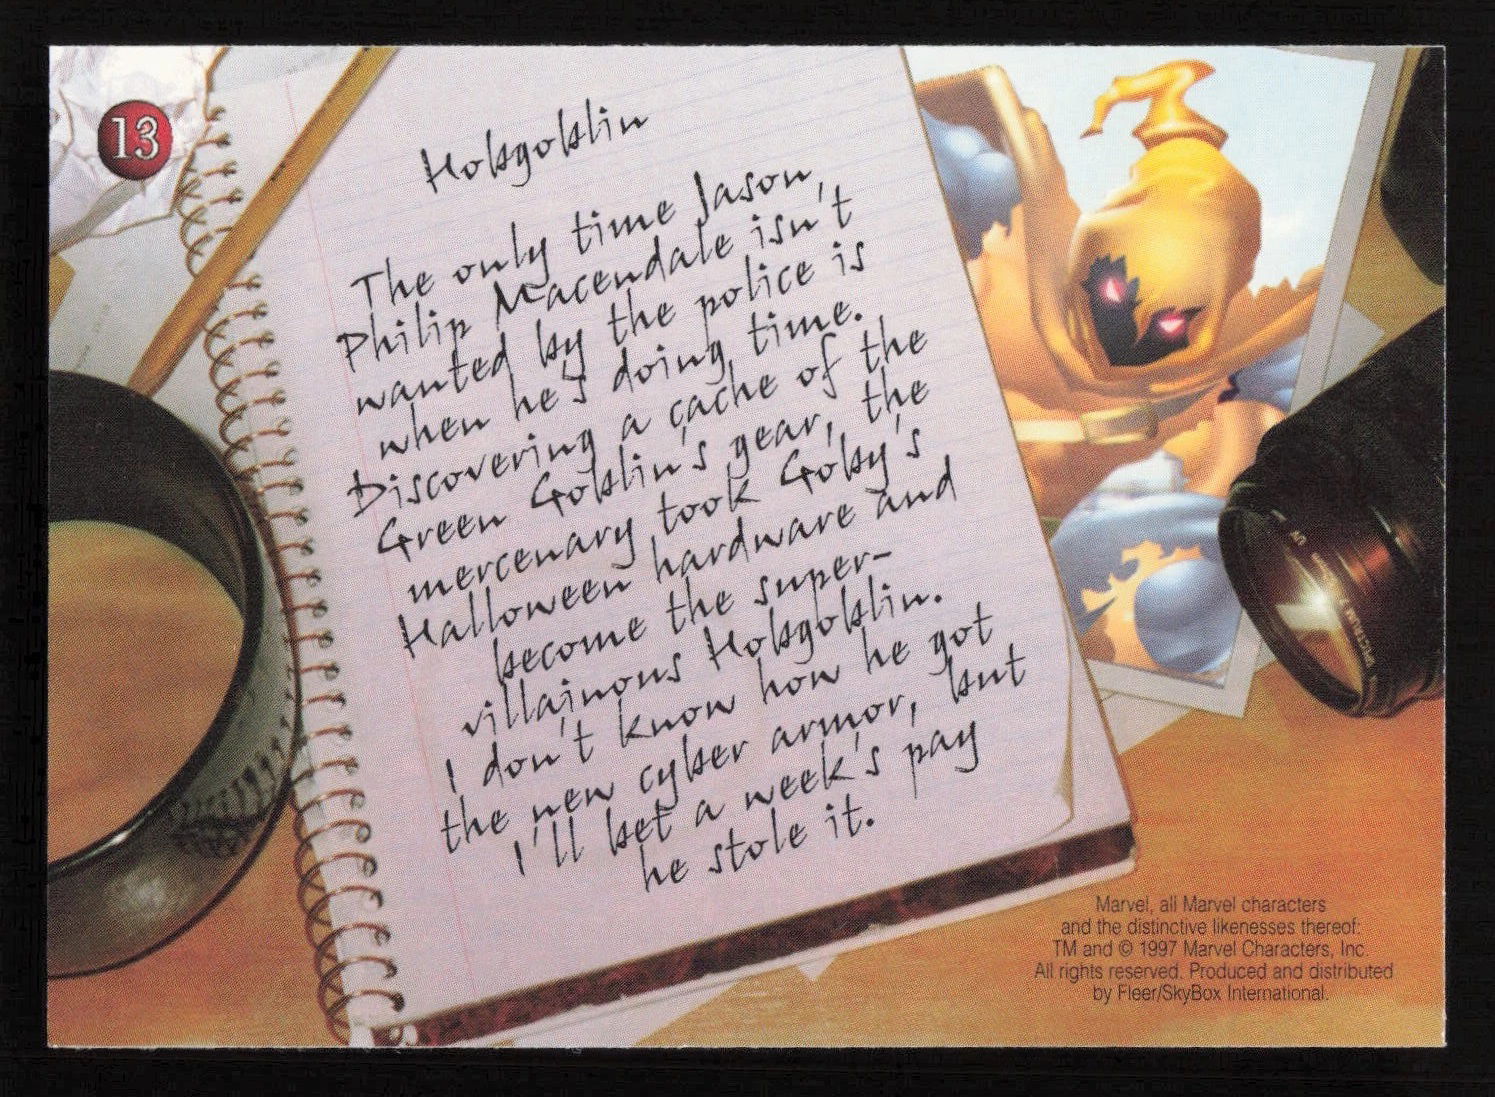 13
Hobgoblin
The only time Jason,
Philip Macendale isn't
wanted by the police is
when he's doing time.
Discovering a cache of the
Green Goblin's gear, the
mercenary took Goby's
Halloween hardware and
become the super-
villainous Hobgoblin.
I don't know how he got
the new cyber armor, but
I'll bet a week's pay
he stole it.
Marvel, all Marvel characters
and the distinctive likenesses thereof:
TM and © 1997 Marvel Characters, Inc.
All rights reserved. Produced and distributed
by Fleer/SkyBox International.